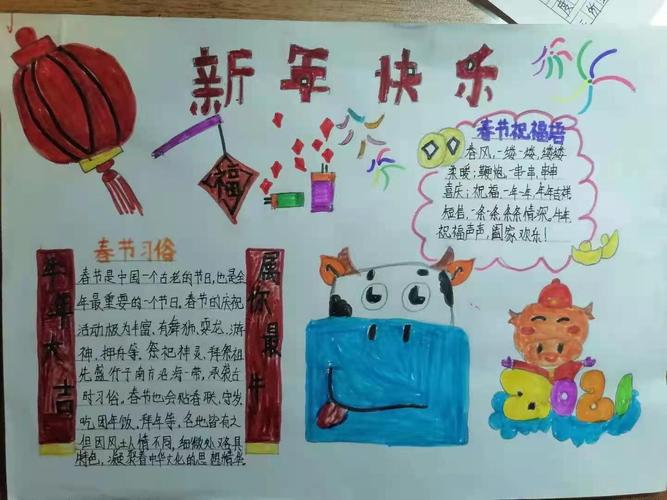 新年快乐
福
春节祝福语
春风,一缕一缕,缕缕
柔暖;鞭炮,一串一串,串串
喜庆;祝福,一年一年,年年吉祥
短信,一条一条,条条情深。牛年
祝福声声,阖家欢乐!
春节习俗
牛年大吉
春节是中国一个古老的节日,也是全
年最重要的一个节日。春节的庆祝
活动版为丰富,有舞狮、耍龙、游
神、押舟等、祭祀神灵、拜祭祖
先盛行于南市沿海一带,承袭古
时习俗,春节也会贴春联、守岁
吃团年饭、拜年等,各地皆有之
但因风土人情不同,细微处各具
特色,凝聚着中华文化的思想精华
属你最牛
2021